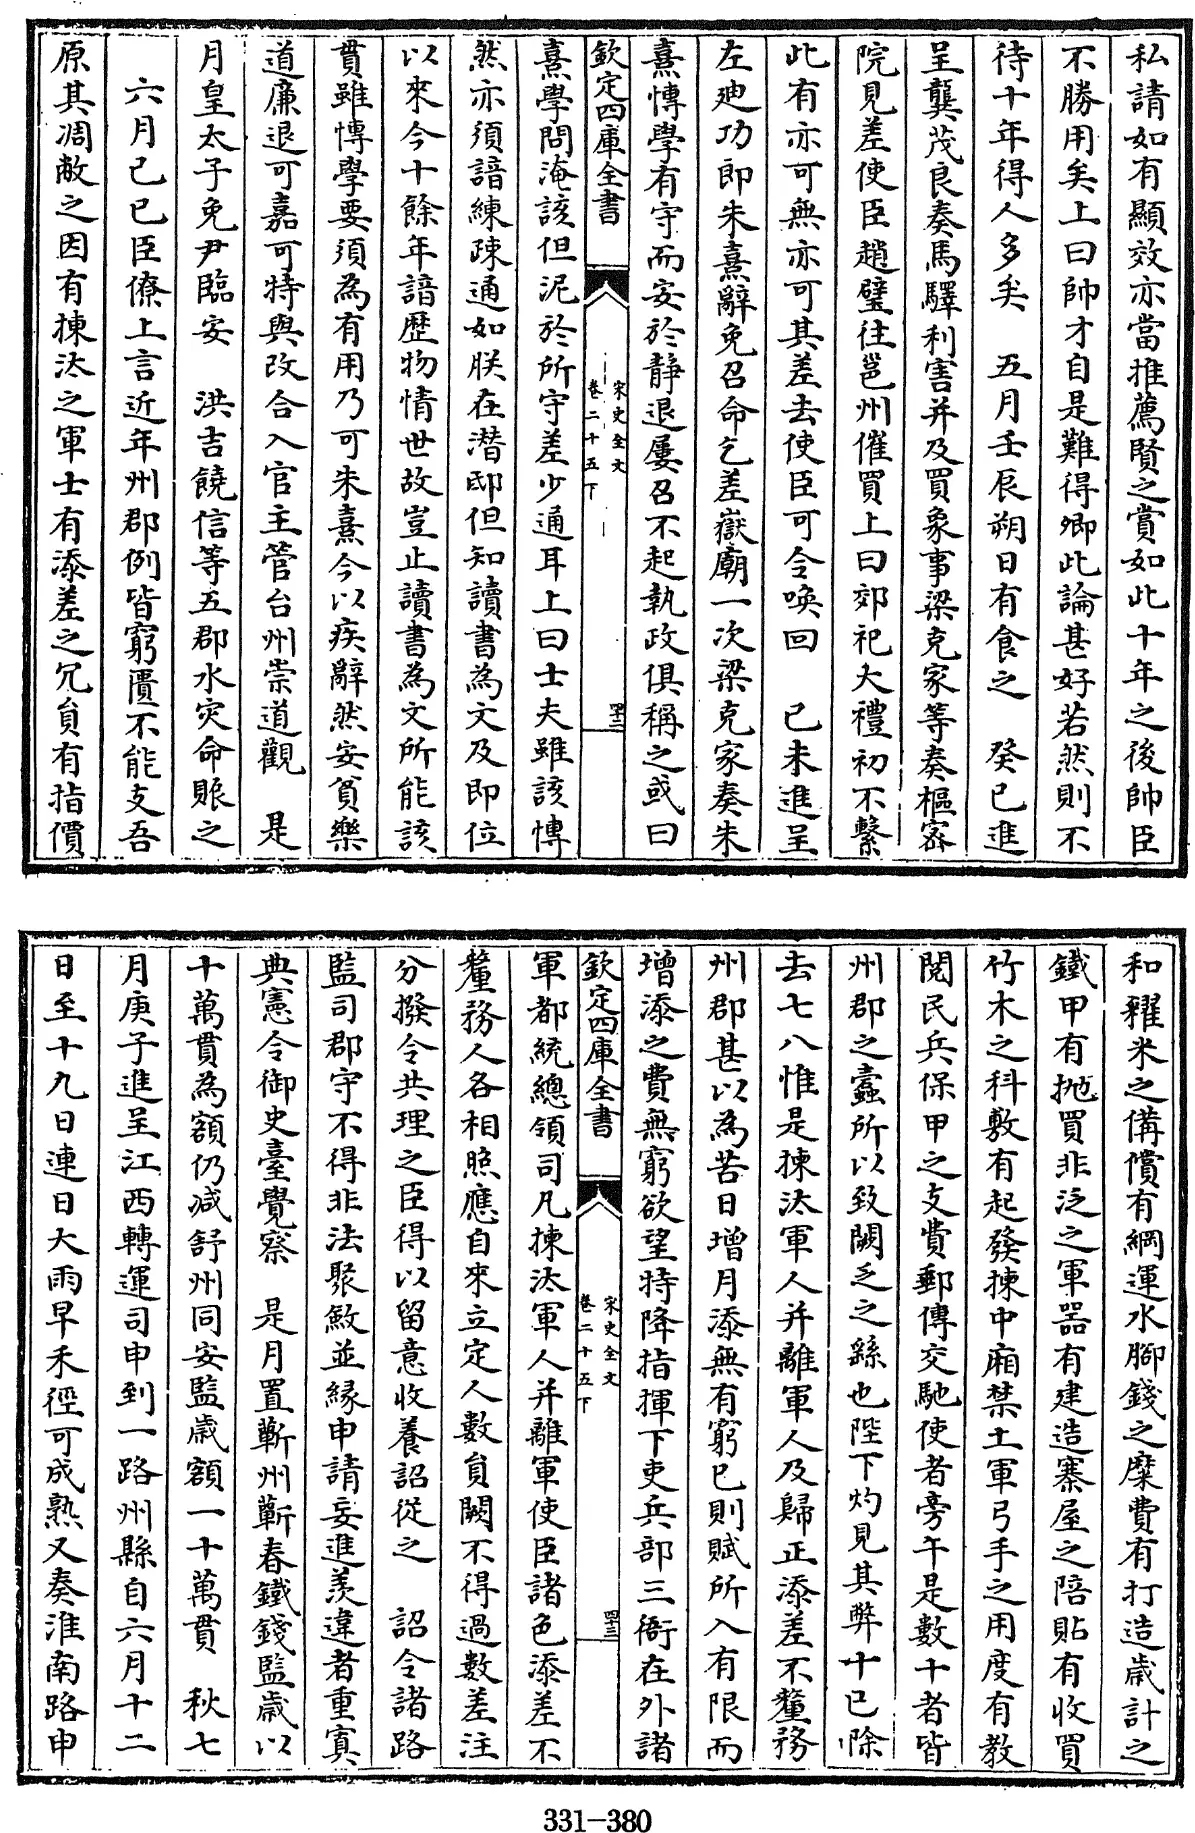 私請如有顯效亦當推薦賢之賞如此十年之後帥臣
不勝用矣上曰帥才自是難得卿此論甚好若然則不
待十年得人多矣　五月壬辰朔日有食之　癸巳進
呈龔茂良奏馬驛利害并及買象事梁克家等奏樞宻
院見差使臣趙璧往邕州催買上曰郊祀大禮初不繫
此有亦可無亦可其差去使臣可令喚回　己未進呈
左廸功即朱熹辭免召命乞差嶽廟一次梁克家奏朱
熹慱學有守而安於静退屢召不起執政俱稱之或曰
欽定四庫全書
宋史全文
卷二十五下
四十二
熹學問淹該但泥於所守差少通耳上曰士夫雖該慱
然亦須諳練疎通如朕在潛邸但知讀書為文及即位
以來今十餘年諳歴物情世故豈止讀書為文所能該
貫雖慱學要須為有用乃可朱熹今以疾辭然安貧樂
道廉退可嘉可特與改合入官主管台州崇道觀　是
月皇太子免尹臨安　洪吉饒信等五郡水灾命賑之
六月己巳臣僚上言近年州郡例皆窮匱不能支吾
原其凋敝之因有揀汰之軍士有添差之冗負有指價
和糴米之備償有綱運水腳錢之糜費有打造歳計之
鐵甲有拋買非泛之軍器有建造寨屋之陪貼有收買
竹木之科敷有起發揀中廂禁土軍弓手之用度有教
閱民兵保甲之支費郵傳交馳使者旁午是數十者皆
州郡之蠧所以致闕乏之繇也陛下灼見其弊十已除
去七八惟是揀汰軍人并離軍人及歸正添差不釐務
州郡甚以為苦日增月添無有窮已則賦所入有限而
增添之費無窮欲望特降指揮下吏兵部三衙在外諸
欽定四庫全書
宋史全文
卷二十五下
四十三
軍都統總領司凡揀汰軍人并離軍使臣諸色添差不
釐務人各相照應自來立定人數負闕不得過數差注
分撥令共理之臣得以留意收養詔從之　詔令諸路
監司郡守不得非法聚斂並縁申請妄進羨違者重寘
典憲令御史臺覺察　是月置蘄州蘄春鐵錢監歳以
十萬貫為額仍减舒州同安監歳額一十萬貫　秋七
月庚子進呈江西轉運司申到一路州縣自六月十二
日至十九日連日大雨早禾徑可成熟又奏淮南路申
331-380